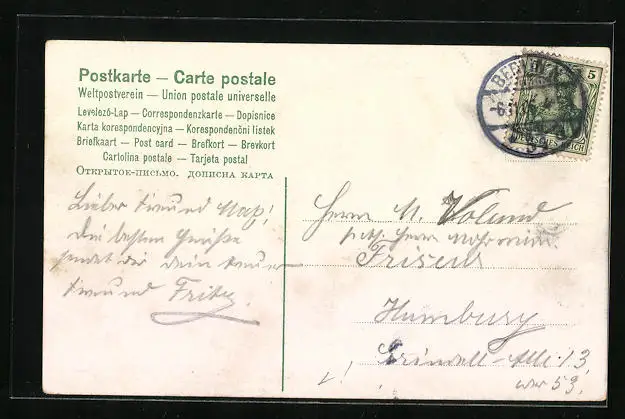 Postkarte — Carte postale
Weltpostverein — Union postale universelle
Levelező-Lap — Correspondenzkarte — Dopisnice
Karta korespondencyjna — Korespondenční listek
Briefkaart — Post card — Brefkort — Brevkort
Cartolina postale — Tarjeta postal
Открытое-письмо. дописна карта
5
DEUTSCHES REICH
Lieber Freund Max!
Die besten Grüße
sendet dir dein treuer
Freund Fritz.
Herrn M.
Herrn
Friseur
Hamburg
Grindel-Alle 13